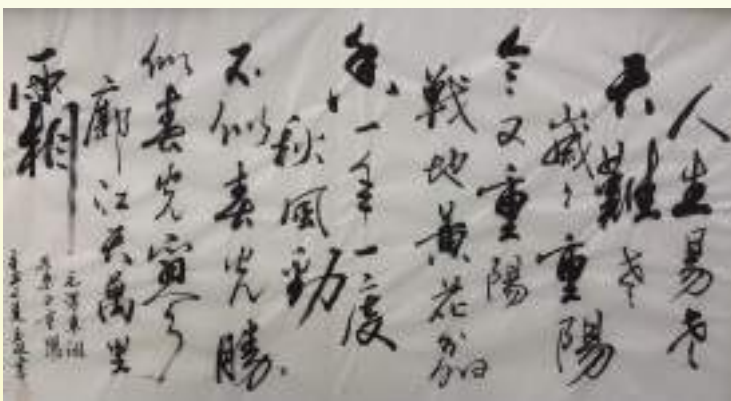 人生易老
天難老
歲々重陽
今又重陽
戰地黄花分外
香一年一度
秋風勁
不似春光勝
似春光寥
廓江天萬里
霜
毛澤東詞
采桑子重陽